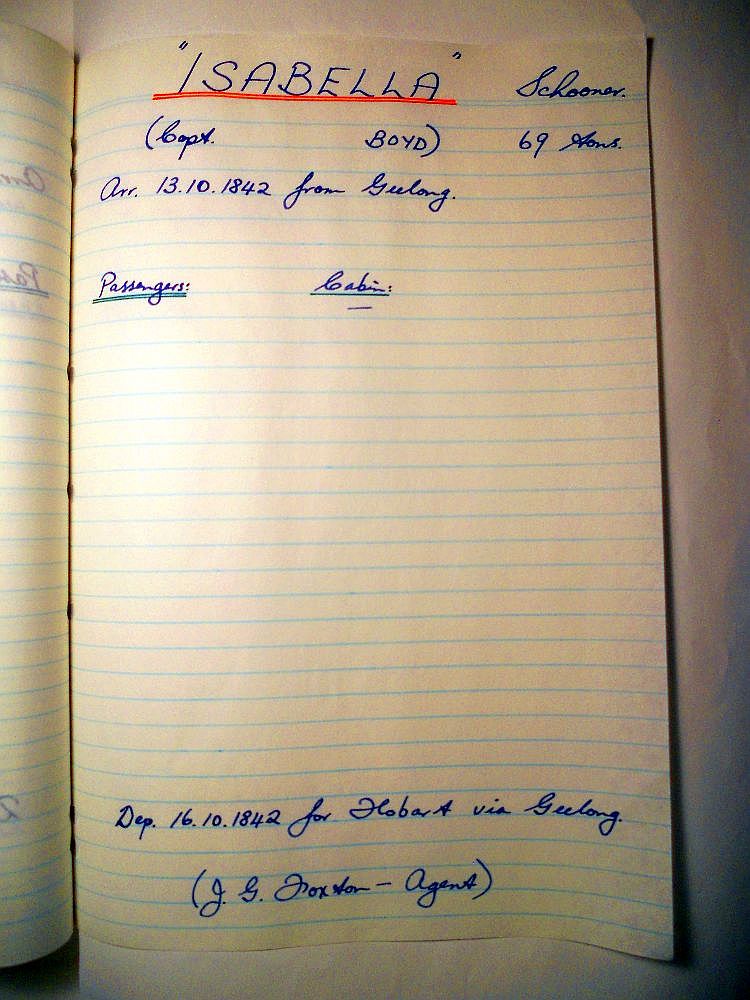 "ISABELLA" Schooner.
(Capt. BOYD) 69 tons.
Arr. 13.10.1842 from Geelong.
Passengers: Cabin:
—
Dep. 16.10.1842 for Hobart via Geelong.
(J. G. Foxton - Agent)